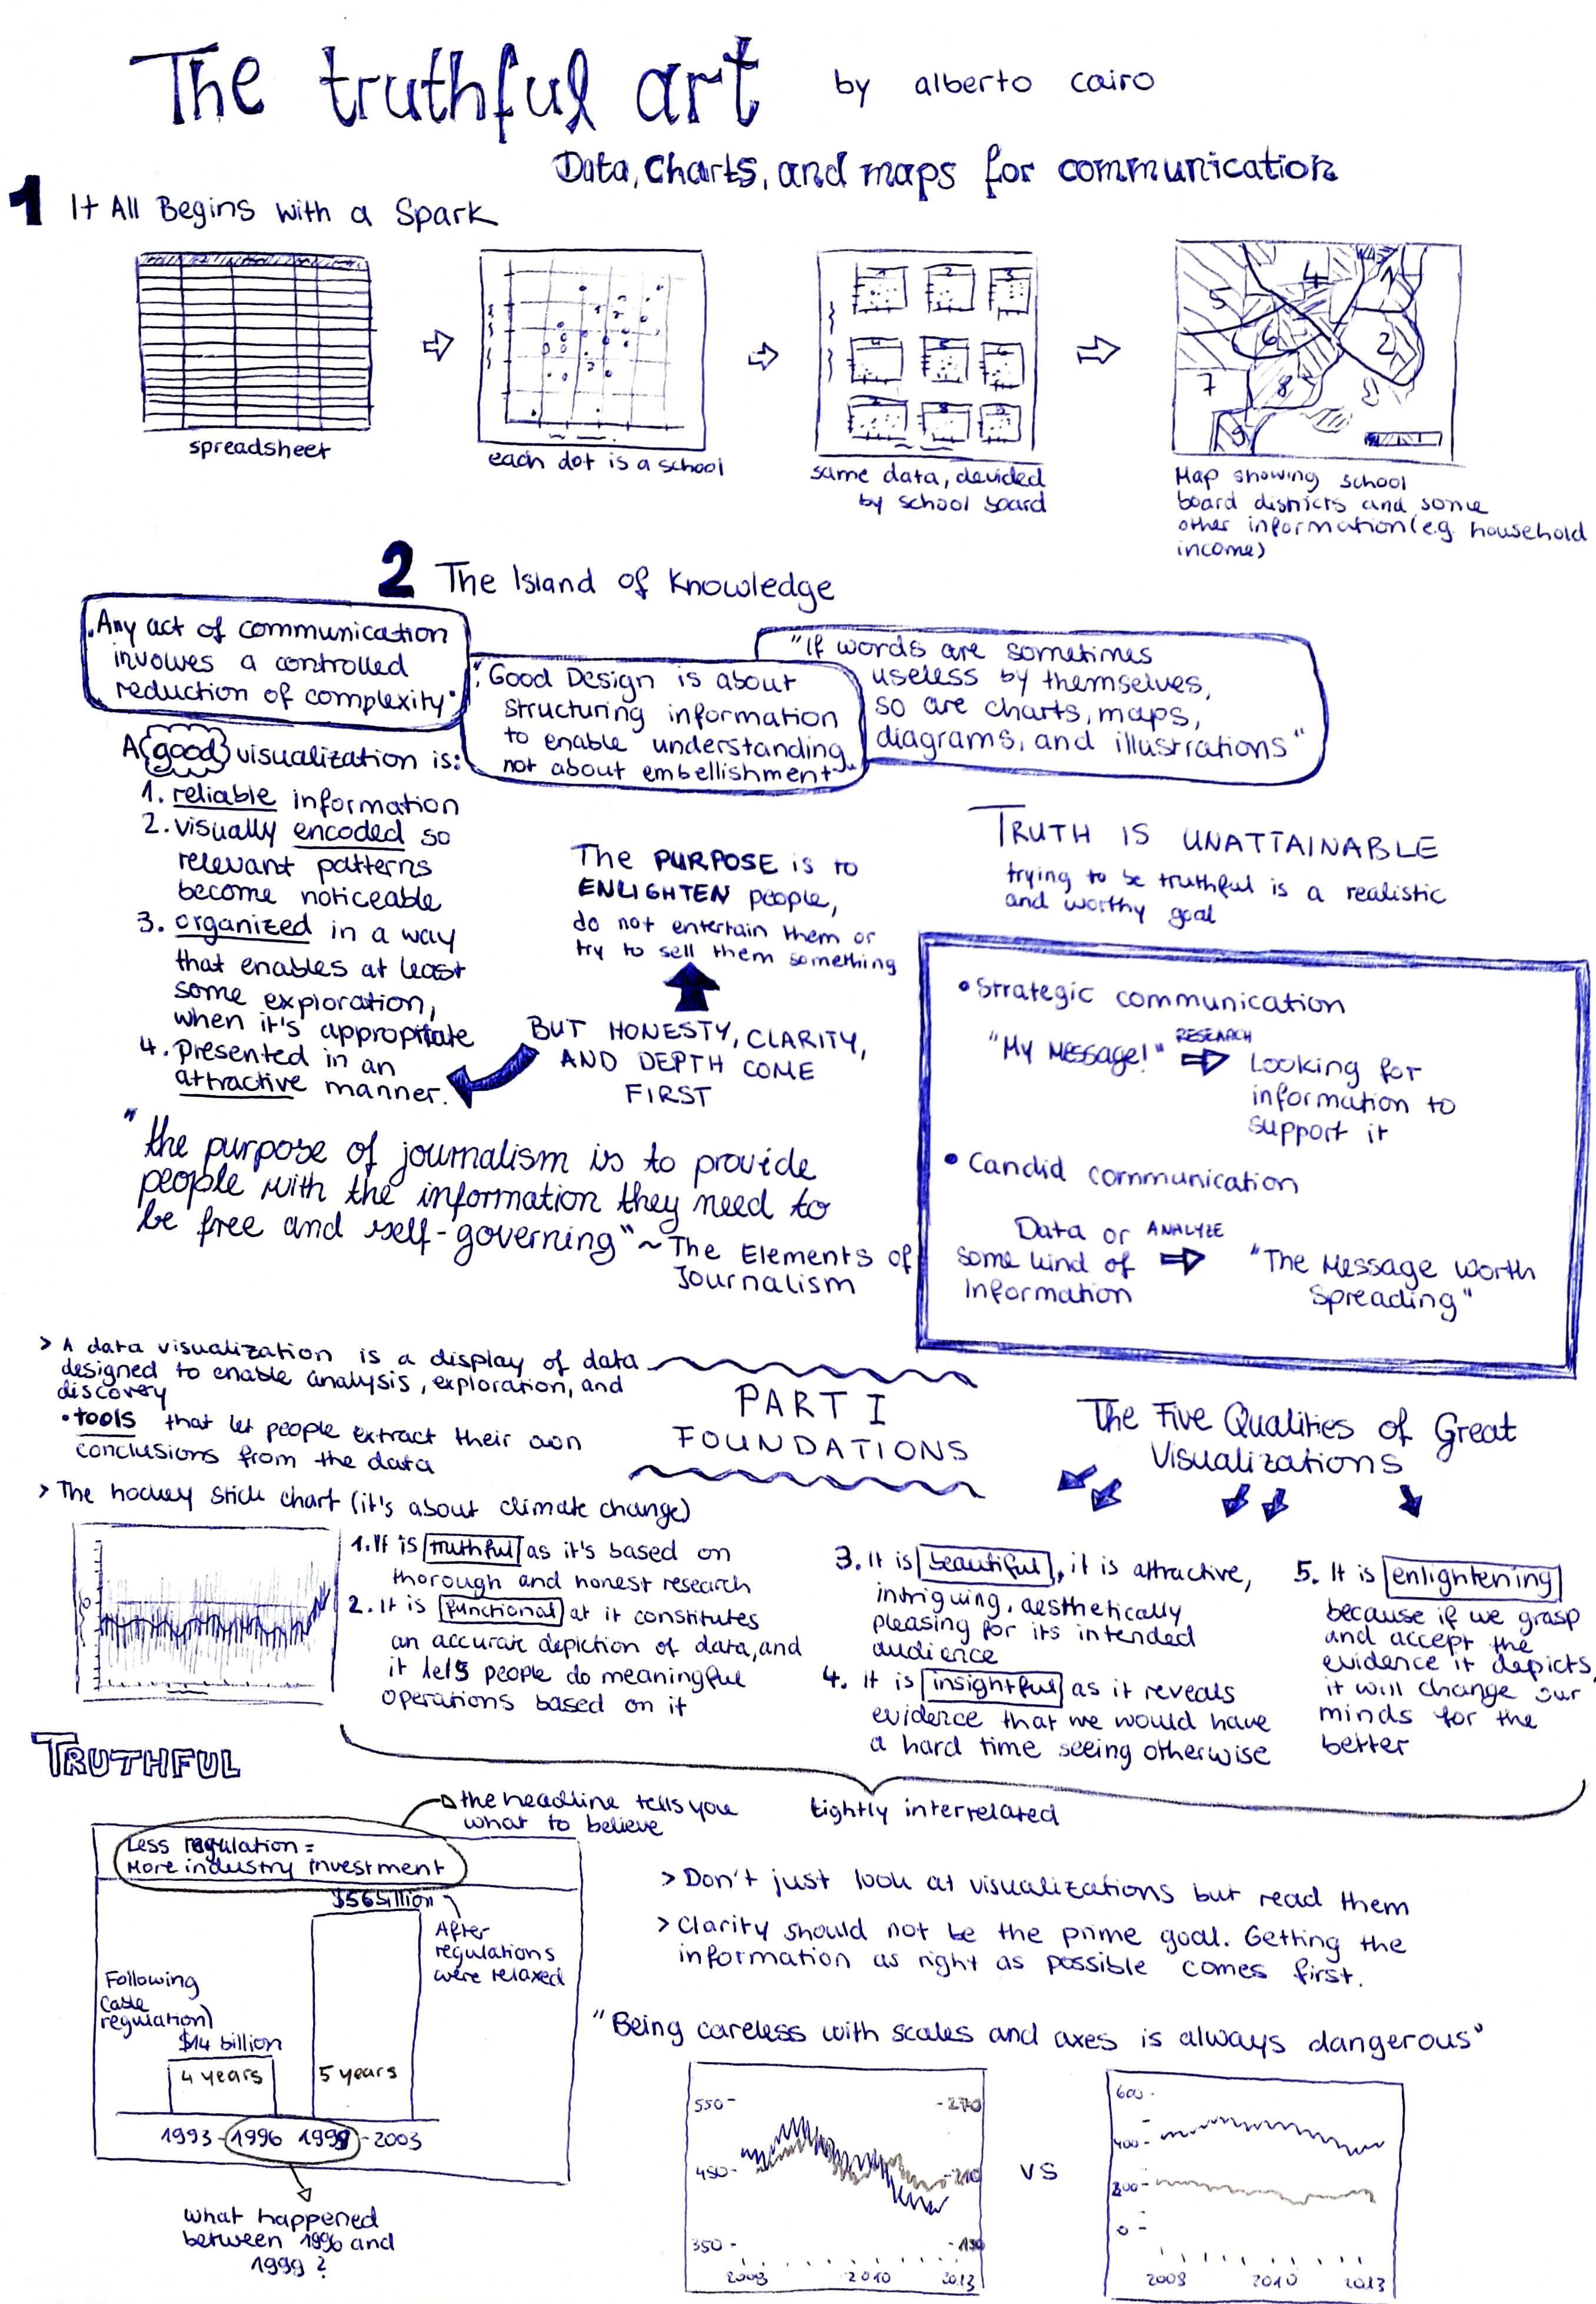 The truthful art by alberto cairo
Data, Charts, and maps for communication
1 It All Begins with a Spark
spreadsheet
each dot is a school
1 2 3
4 5 6
7 8 9
same data, devided
by school board
4 1
5
6 2
7 8
9
Map showing school
board districts and some
other information (e.g. household
income)
2 The Island of Knowledge
"Any act of communication
involves a controlled
reduction of complexity"
"Good Design is about
structuring information
to enable understanding
not about embellishment"
"If words are sometimes
useless by themselves,
so are charts, maps,
diagrams, and illustrations"
A good visualization is:
1. reliable information
2. visually encoded so
relevant patterns
become noticeable
3. organized in a way
that enables at least
some exploration,
when it's appropitate
4. presented in an
attractive manner.
The PURPOSE is to
ENLIGHTEN people,
do not entertain them or
try to sell them something
BUT HONESTY, CLARITY,
AND DEPTH COME
FIRST
TRUTH IS UNATTAINABLE
trying to be truthful is a realistic
and worthy goal
• Strategic communication
"My Message!" RESEARCH
Looking for
information to
support it
• Candid communication
Data or ANALYZE
some kind of
Information
"The Message worth
Spreading"
"the purpose of journalism is to provide
people with the information they need to
be free and self-governing" ~ The Elements of
Journalism
> A data visualization is a display of data
designed to enable analysis, exploration, and
discovery
• tools that let people extract their own
conclusions from the data
PART I
FOUNDATIONS
The Five Qualities of Great
Visualizations
> The hockey stick chart (it's about climate change)
1. It is truthful as it's based on
thorough and honest research
2. It is functional at it constitutes
an accurate depiction of data, and
it lets people do meaningful
operations based on it
3. It is beautiful, it is attractive,
intriguing, aesthetically
pleasing for its intended
audience
4. It is insightful as it reveals
evidence that we would have
a hard time seeing otherwise
5. It is enlightening
because if we grasp
and accept the
evidence it depicts,
it will change our
minds for the
better
tightly interrelated
TRUTHFUL
the headline tells you
what to believe
Less regulation =
More industry investment
$56 billion
After
regulations
were relaxed
Following
Cable
regulation
$14 billion
4 years
5 years
1993-1996 1999-2003
what happened
between 1996 and
1999?
> Don't just look at visualizations but read them
> Clarity should not be the prime goal. Getting the
information as right as possible comes first.
"Being careless with scales and axes is always dangerous"
550 270
450 210
350
2008 2010 2013
VS
600
400
200
0
2008 2010 2013